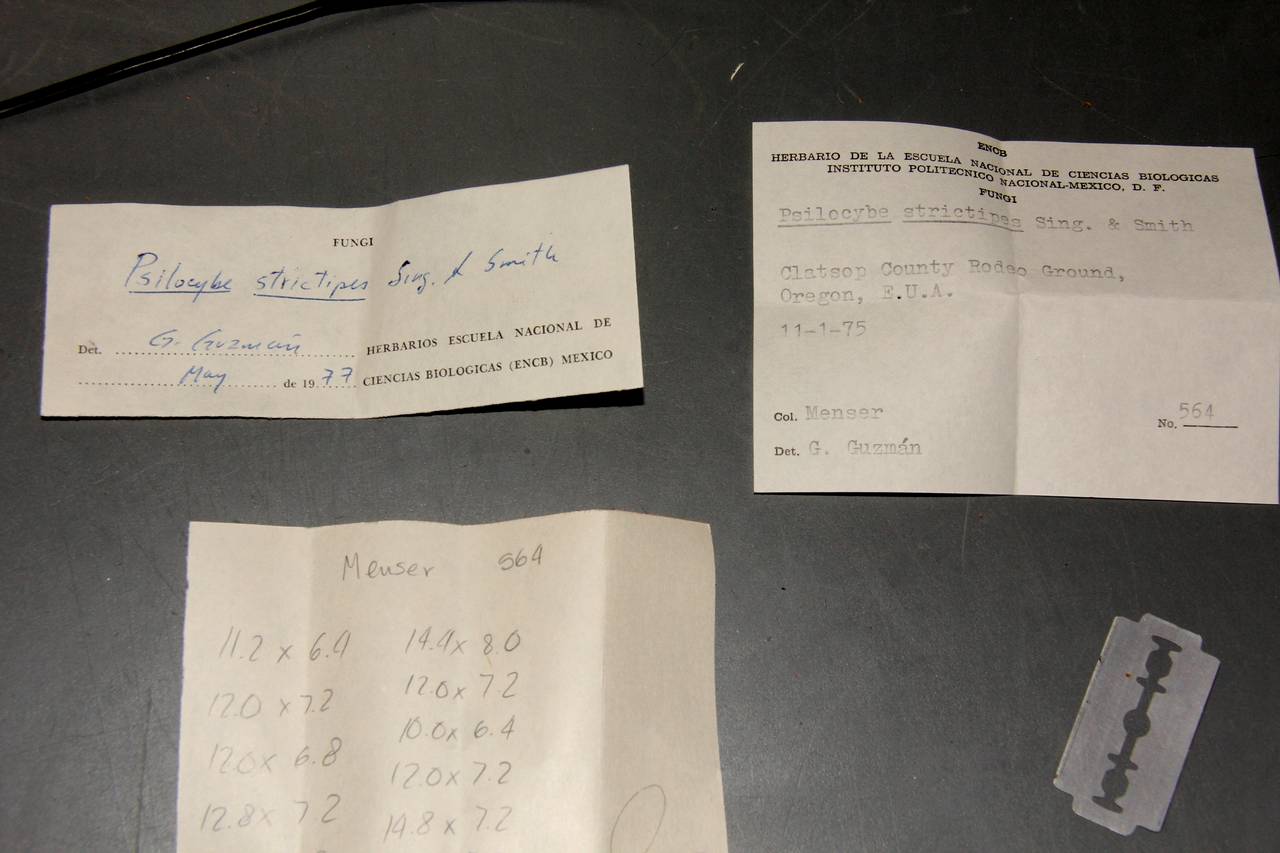 FUNGI
Psilocybe strictipes Sing. & Smith
Det. G. Guzmán HERBARIOS ESCUELA NACIONAL DE
May de 1977 CIENCIAS BIOLOGICAS (ENCB) MEXICO
ENCB
HERBARIO DE LA ESCUELA NACIONAL DE CIENCIAS BIOLOGICAS
INSTITUTO POLITECNICO NACIONAL-MEXICO, D. F.
FUNGI
Psilocybe strictipes Sing. & Smith
Clatsop County Rodeo Ground,
Oregon, E.U.A.
11-1-75
Col. Menser No. 564
Det. G. Guzmán
Menser 564
11.2 x 6.4 14.4 x 8.0
12.0 x 7.2 12.0 x 7.2
12.0 x 6.8 10.0 x 6.4
12.8 x 7.2 12.0 x 7.2
14.8 x 7.2